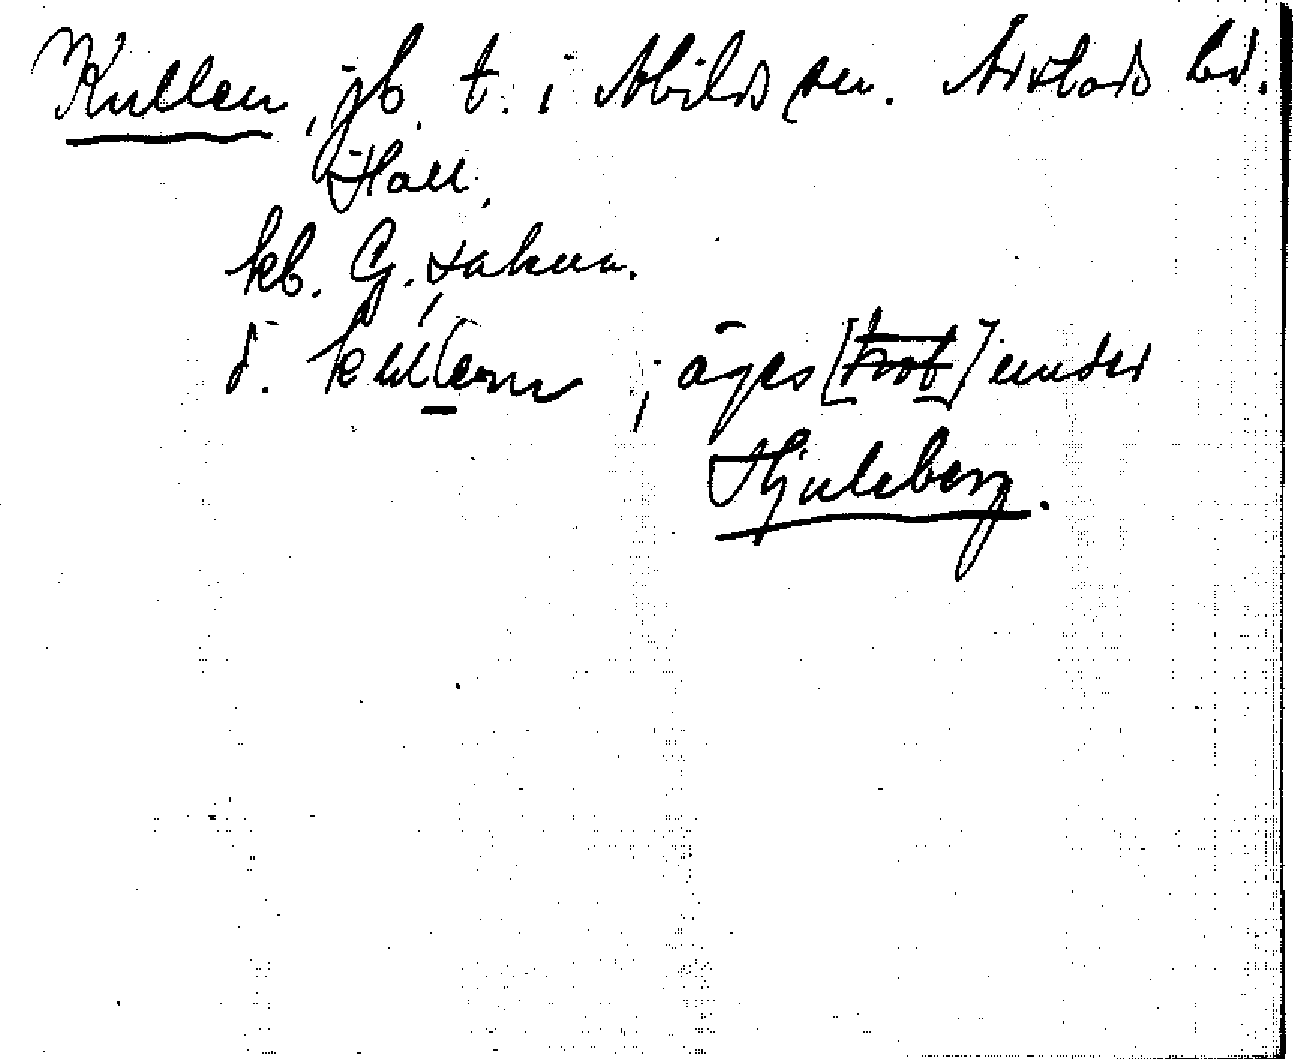 Kullen, jb. t. i Abilds sn. Årstads hd.
Hall.
kb. G. saknas.
d. kullen ; äges [trol] under
Hjuleberg.